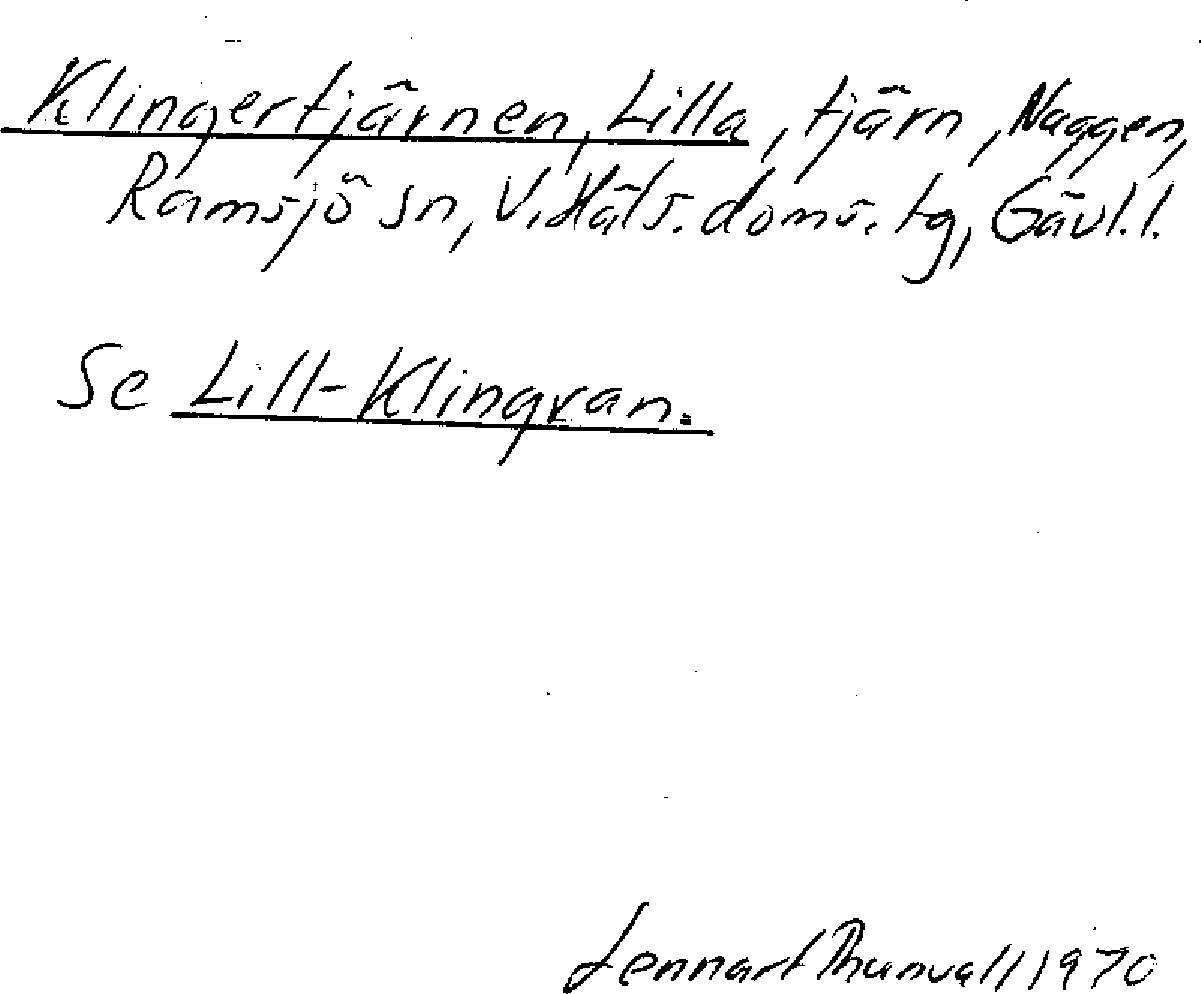 Klingertjärnen, Lilla, tjärn, Naggen,
Ramsjö sn, V. Häls. doms. tg, Gävl. l.
Se Lill-Klingran.
Lennart Thunvall 1970